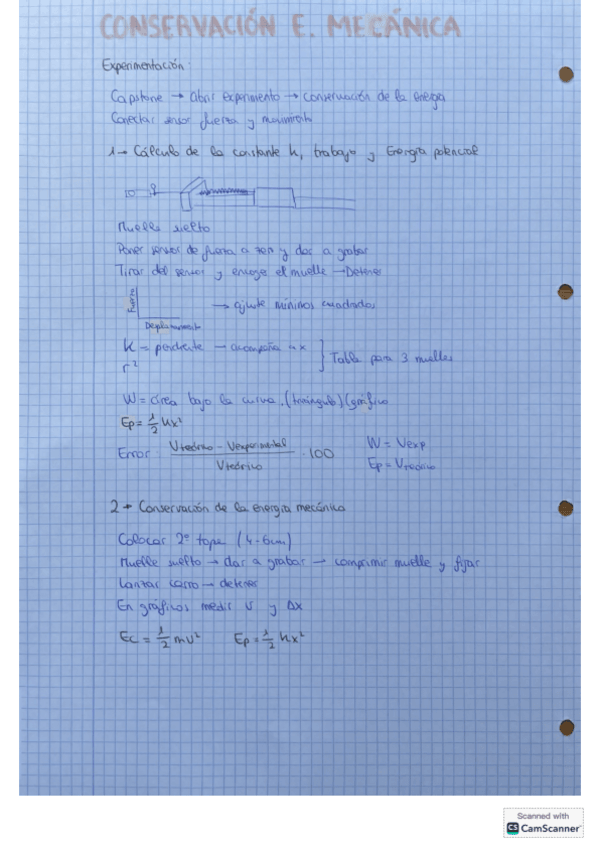 CONSERVACIÓN E. MECÁNICA
Experimentación:
Capstone → Abrir experimento → conservación de la energía
Conectar sensor fuerza y movimiento
1 → Cálculo de la constante k, trabajo y Energía potencial
Muelle suelto
Poner sensor de fuerza a zero y dar a grabar
Tirar del sensor y encoge el muelle → Detener
Fuerza
→ ajuste mínimos cuadrados
Desplazamiento
K = pendiente → acompaña a x
r²
Tabla para 3 muelles
W = área bajo la curva. (triángulo) (gráfico
Ep = 1/2 kx²
Error: Vteórico - Vexperimental / Vteórico · 100
W = Vexp
Ep = Vteórico
2 → Conservación de la energía mecánica
Colocar 2º tope (4-6cm)
Muelle suelto → dar a grabar → comprimir muelle y fijar
Lanzar carro → detener
En gráficos medir v y Δx
Ec = 1/2 mv² Ep = 1/2 kx²
Scanned with
CS CamScanner